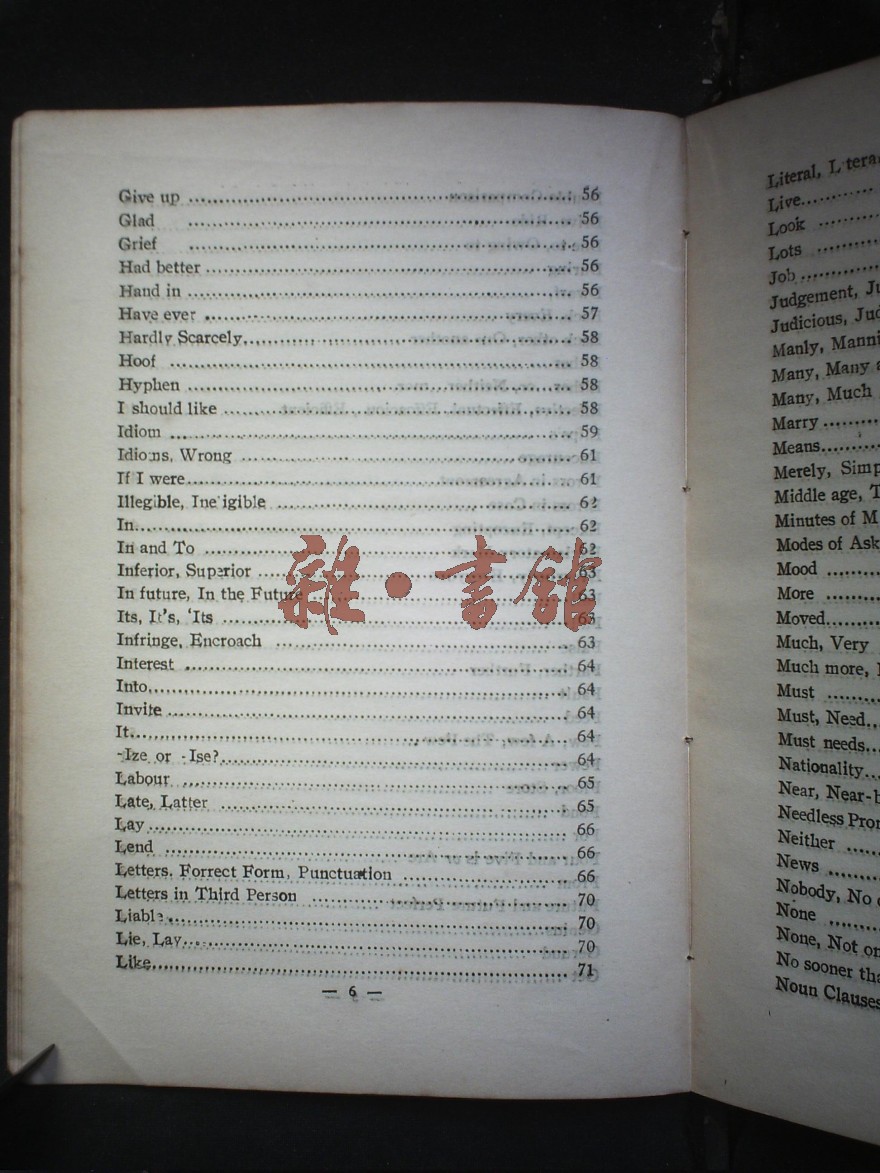 Give up ........ 56
Glad ........ 56
Grief ........ 56
Had better ........ 56
Hand in ........ 56
Have ever ........ 57
Hardly Scarcely ........ 58
Hoof ........ 58
Hyphen ........ 58
I should like ........ 58
Idiom ........ 59
Idioms, Wrong ........ 61
If I were ........ 61
Illegible, Ine igible ........ 62
In ........ 62
In and To ........ 62
Inferior, Superior ........ 63
In future, In the Future ........ 63
Its, It's, 'Its ........ 63
Infringe, Encroach ........ 63
Interest ........ 64
Into ........ 64
Invite ........ 64
It ........ 64
-Ize or -Ise? ........ 64
Labour ........ 65
Late, Latter ........ 65
Lay ........ 66
Lend ........ 66
Letters, Forrect Form, Punctuation ........ 66
Letters in Third Person ........ 70
Liable ........ 70
Lie, Lay ........ 70
Like ........ 71
— 6 —
雜·書館
Literal, L tera
Live
Look
Lots
Job
Judgement, Ju
Judicious, Jud
Manly, Manni
Many, Many a
Many, Much
Marry
Means
Merely, Simp
Middle age, T
Minutes of M
Modes of Ask
Mood
More
Moved
Much, Very
Much more,
Must
Must, Need
Must needs
Nationality
Near, Near-b
Needless Pron
Neither
News
Nobody, No
None
None, Not on
No sooner tha
Noun Clauses